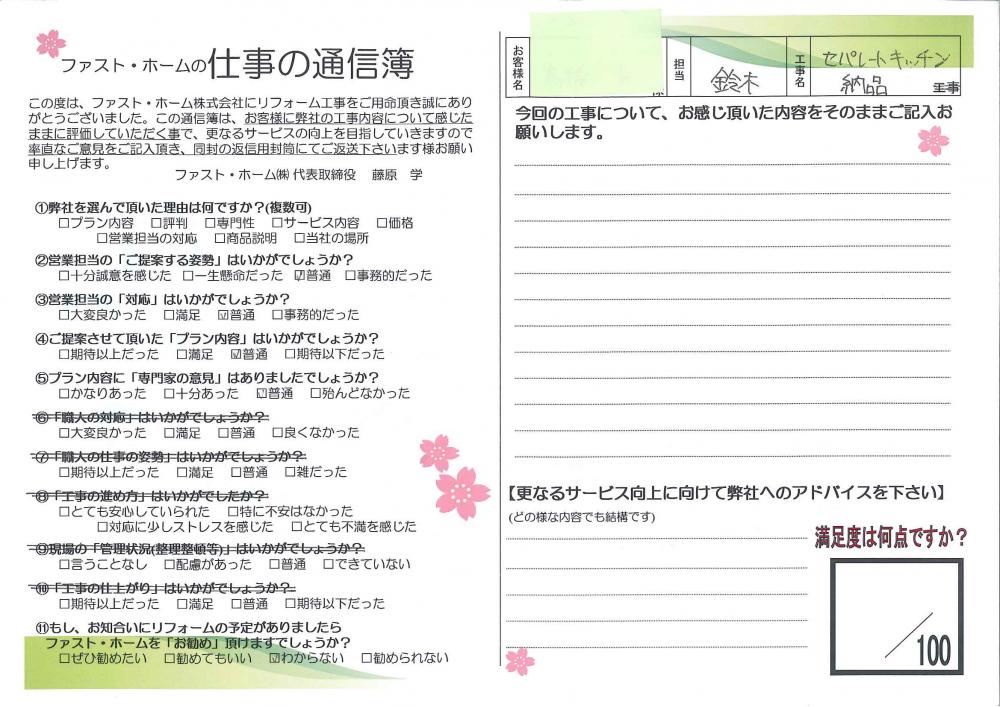 ファスト・ホームの仕事の通信簿
この度は、ファスト・ホーム株式会社にリフォーム工事をご用命頂き誠にあり
がとうございました。この通信簿は、お客様に弊社の工事内容について感じた
ままに評価していただく事で、更なるサービスの向上を目指していきますので
率直なご意見をご記入頂き、同封の返信用封筒にてご返送下さいます様お願い
申し上げます。
ファスト・ホーム㈱ 代表取締役 藤原 学
①弊社を選んで頂いた理由は何ですか?(複数可)
□プラン内容 □評判 □専門性 □サービス内容 □価格
□営業担当の対応 □商品説明 □当社の場所
②営業担当の「ご提案する姿勢」はいかがでしょうか?
□十分誠意を感じた □一生懸命だった ☑普通 □事務的だった
③営業担当の「対応」はいかがでしょうか?
□大変良かった □満足 ☑普通 □事務的だった
④ご提案させて頂いた「プラン内容」はいかがでしょうか?
□期待以上だった □満足 ☑普通 □期待以下だった
⑤プラン内容に「専門家の意見」はありましたでしょうか?
□かなりあった □十分あった ☑普通 □殆んどなかった
⑥「職人の対応」はいかがでしょうか?
□大変良かった □満足 □普通 □良くなかった
⑦「職人の仕事の姿勢」はいかがでしょうか?
□期待以上だった □満足 □普通 □雑だった
⑧「工事の進め方」はいかがでしたか?
□とても安心していられた □特に不安はなかった
□対応に少しストレスを感じた □とても不満を感じた
⑨現場の「管理状況(整理整頓等)」はいかがでしょうか?
□言うことなし □配慮があった □普通 □できていない
⑩「工事の仕上がり」はいかがでしょうか?
□期待以上だった □満足 □普通 □期待以下だった
⑪もし、お知合いにリフォームの予定がありましたら
ファスト・ホームを「お勧め」頂けますでしょうか?
□ぜひ勧めたい □勧めてもいい ☑わからない □勧められない
お客様名 様 担当 鈴木 工事名 セパレートキッチン
納品 工事
今回の工事について、お感じ頂いた内容をそのままご記入お
願いします。
【更なるサービス向上に向けて弊社へのアドバイスを下さい】
(どの様な内容でも結構です)
満足度は何点ですか?
/100